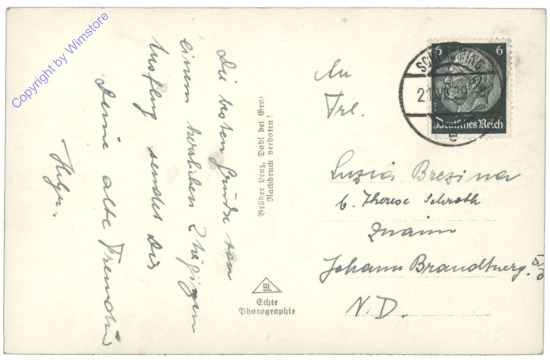 Copyright by Wimstore
Die besten Grüße von
einem herrlichen 2 tägigem
Ausflug sendet Dir
Deine alte Freundin
Helga.
Brüder Lenz, Dobl bei Graz
Nachdruck verboten!
BL
Echte
Photographie
6 6
Deutsches Reich
21.VII.39
An
Frl.
Luzia Brezina
b. Therese Schroth
Znaim
Johann Brandtnerg. 5/0
N.D.